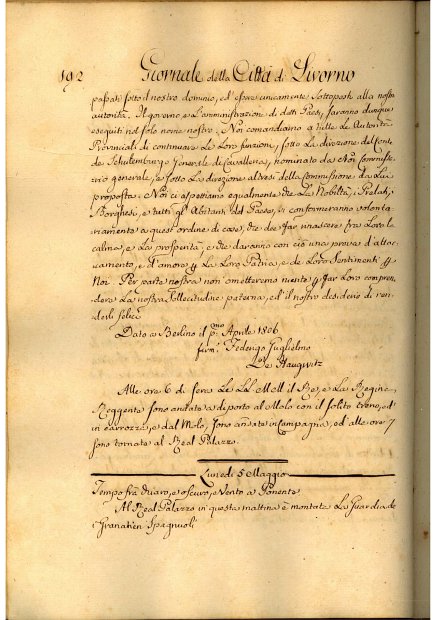 192 Giornale della Città di Livorno
passati sotto il nostro dominio, ed essere unicamente sottoposti alla nostra
autorità. Il governo e l'amministrazione di detti Paesi, saranno dunque
eseguiti nel solo nome nostro. Noi comandiamo a tutte le Autorità
Provinciali di continuare le loro funzioni, sotto la direzione del Conte
de Schulemburgo Generale di Cavalleria, nominato da Noi Commiss-
ario generale, e sotto la direzione altresì della Commissione da Lui
proposta. Noi ci aspettiamo egualmente che la Nobiltà, i Prelati,
i Borghesi, e tutti gl'Abitanti del Paese, si conformeranno volonta-
riamente a quest'ordine di cose, che dee far rinascere fra loro la
calma, e la prosperità, e che daranno con ciò una prova d'attac-
camento, e d'amore p la loro Patria, e de loro sentimenti p
Noi. Per parte nostra non ometteremo niente p far loro compren-
dere la nostra sollecitudine paterna, ed il nostro desiderio di ren-
derli felici
Dato a Berlino il pmo Aprile 1806
firm. Federigo Guglielmo
De Haugwitz
Alle ore 6 di sera Le LL. MM. il Re, e La Regina
Reggente sono andate a diporto al Molo con il solito treno, ed
in carrozza, e dal Molo, sono andate in Campagna, ed alle ore 7
sono tornate al Real Palazzo.
Lunedì 5 Maggio
Tempo frà chiaro, e oscuro, e Vento a Ponente
Al Real Palazzo in questa mattina è montata La Guardia de
Granatieri Spagnuoli